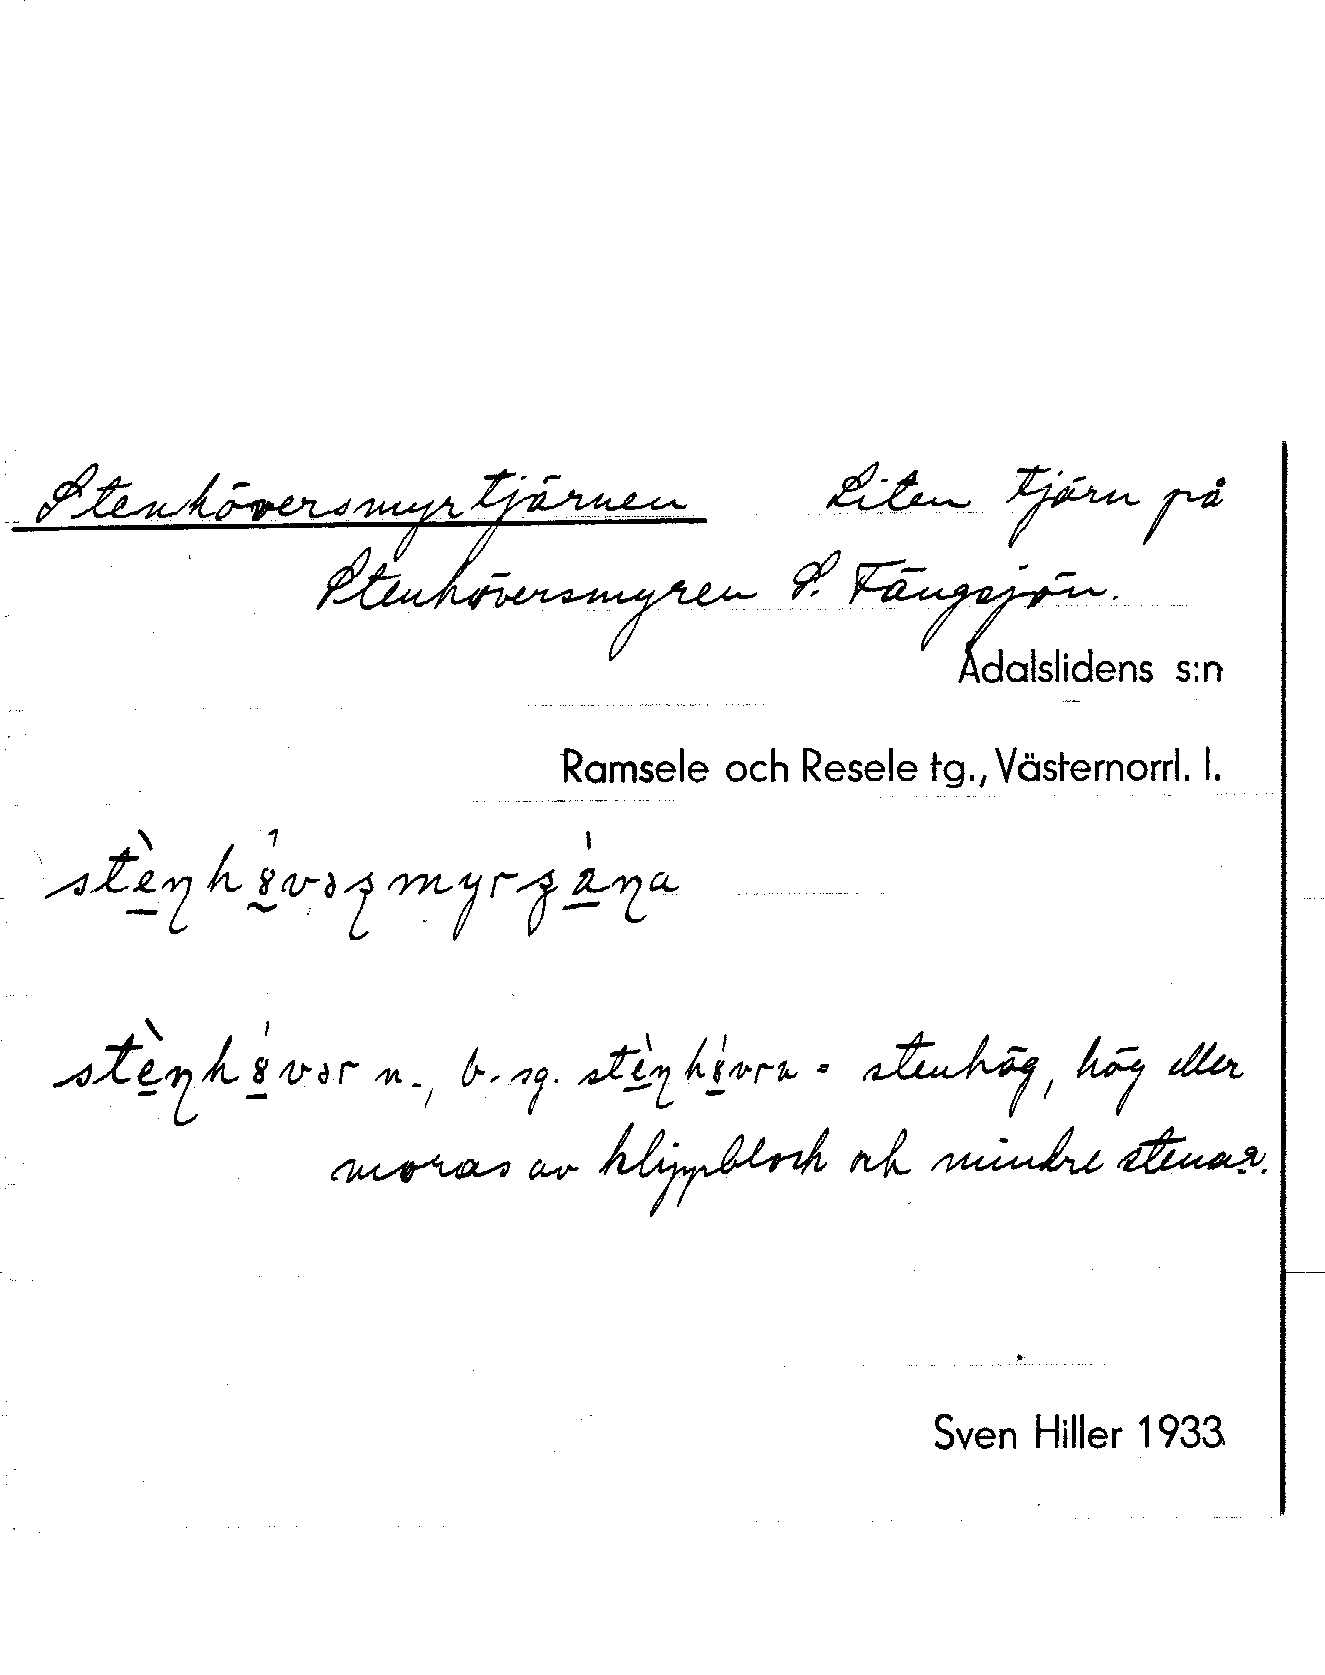 Stenhöversmyrtjärnen Liten tjärn på
Stenhöversmyren S. Fängsjön.
Ådalslidens s:n
Ramsele och Resele tg., Västernorrl. l.
n., b. sg. = stenhög, hög eller
moras av klippblock och mindre stenar.
Sven Hiller 1933